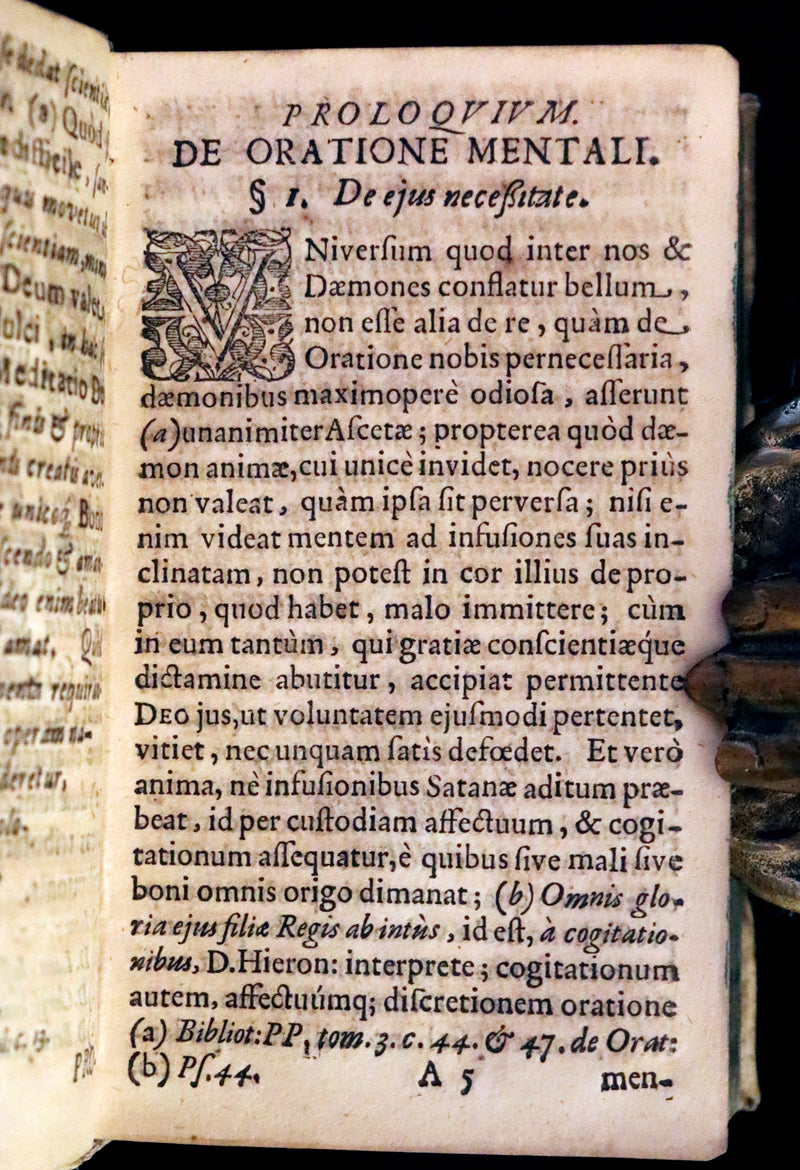 se dedat scientiæ
(a) Quod
difficile,
qua movetur
scientiam,
Deum valet,
dulci,
Meditatio
finis &
creatu
unico
scendo &
enim
amat. Qui
mentis requirit
operam na-
deretur,
PRO-
PROLOQVIVM.
DE ORATIONE MENTALI.
§ 1. De ejus neceſſitate.
VNiverſum quod inter nos &
Dæmones conflatur bellum,
non eſſe alia de re, quàm de
Oratione nobis perneceſſaria,
dæmonibus maximoperè odioſa, aſſerunt
(a) unanimiter Aſcetæ; propterea quòd dæ-
mon animæ, cui unicè invidet, nocere priùs
non valeat, quàm ipſa ſit perverſa; niſi e-
nim videat mentem ad infuſiones ſuas in-
clinatam, non poteſt in cor illius de pro-
prio, quod habet, malo immittere; cùm
in eum tantùm, qui gratiæ conſcientiæq́ue
dictamine abutitur, accipiat permittente
DEO jus, ut voluntatem ejuſmodi pertentet,
vitiet, nec unquam ſatis defœdet. Et verò
anima, nè infuſionibus Satanæ aditum præ-
beat, id per cuſtodiam affectuum, & cogi-
tationum aſſequatur, è quibus ſive mali ſive
boni omnis origo dimanat; (b) Omnis glo-
ria ejus filiæ Regis ab intùs, id eſt, à cogitatio-
nibus, D. Hieron: interprete; cogitationum
autem, affectuúmq; diſcretionem oratione
(a) Bibliot: PP, tom. 3. c. 44. & 47. de Orat:
(b) Pſ. 44.
A 5 men-